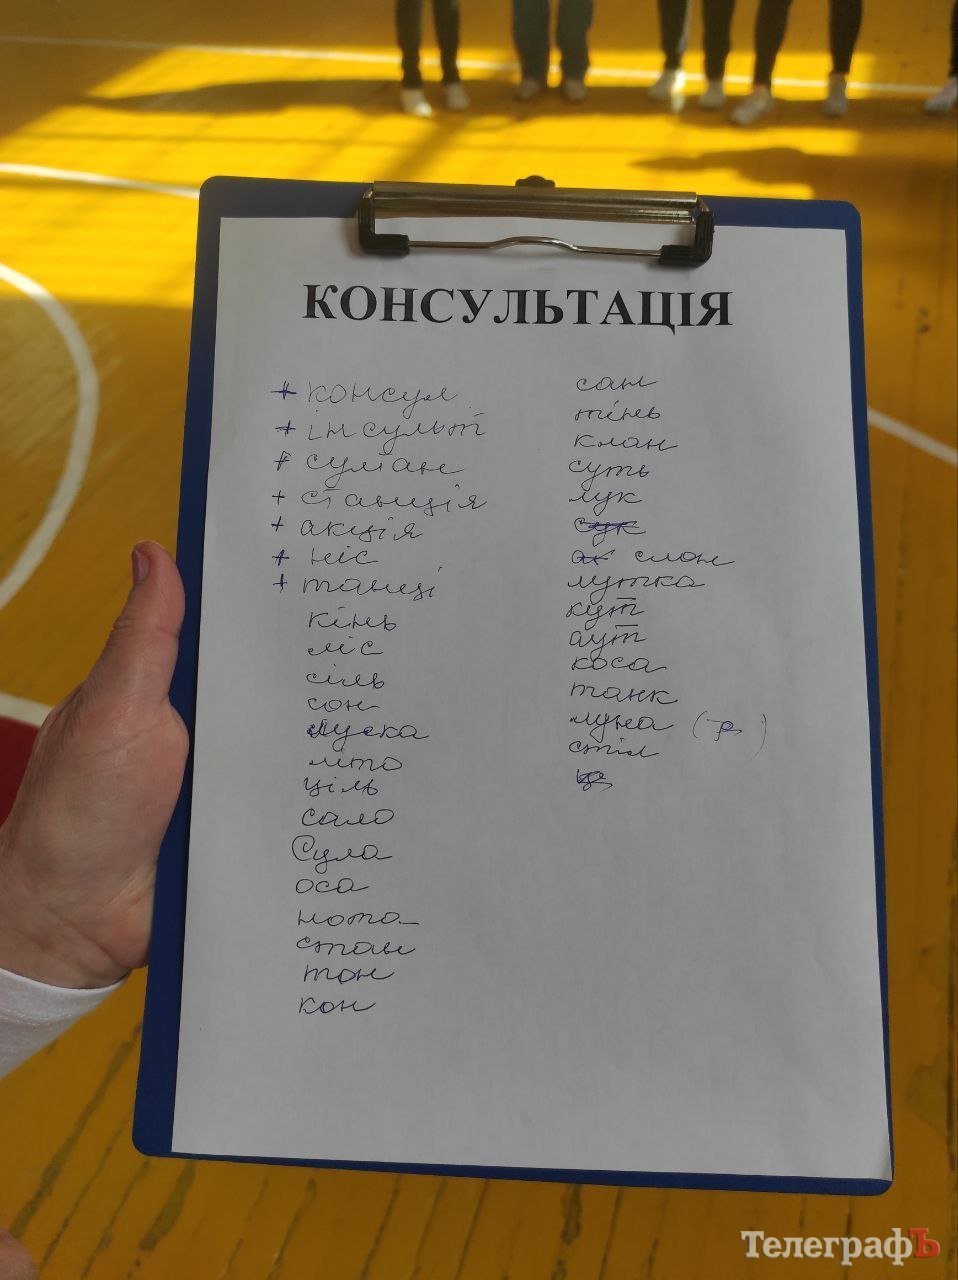 КОНСУЛЬТАЦІЯ
+ консул
+ інсульт
+ султан
+ станція
+ акція
+ ніс
+ танці
кінь
ліс
сіль
сон
луска
літо
ціль
сало
Сула
оса
нота
стан
тон
кон
сан
тінь
клан
суть
лук
сук
ак слон
лутка
кут
аут
коса
танк
луна
стіл
ТелеграфЪ